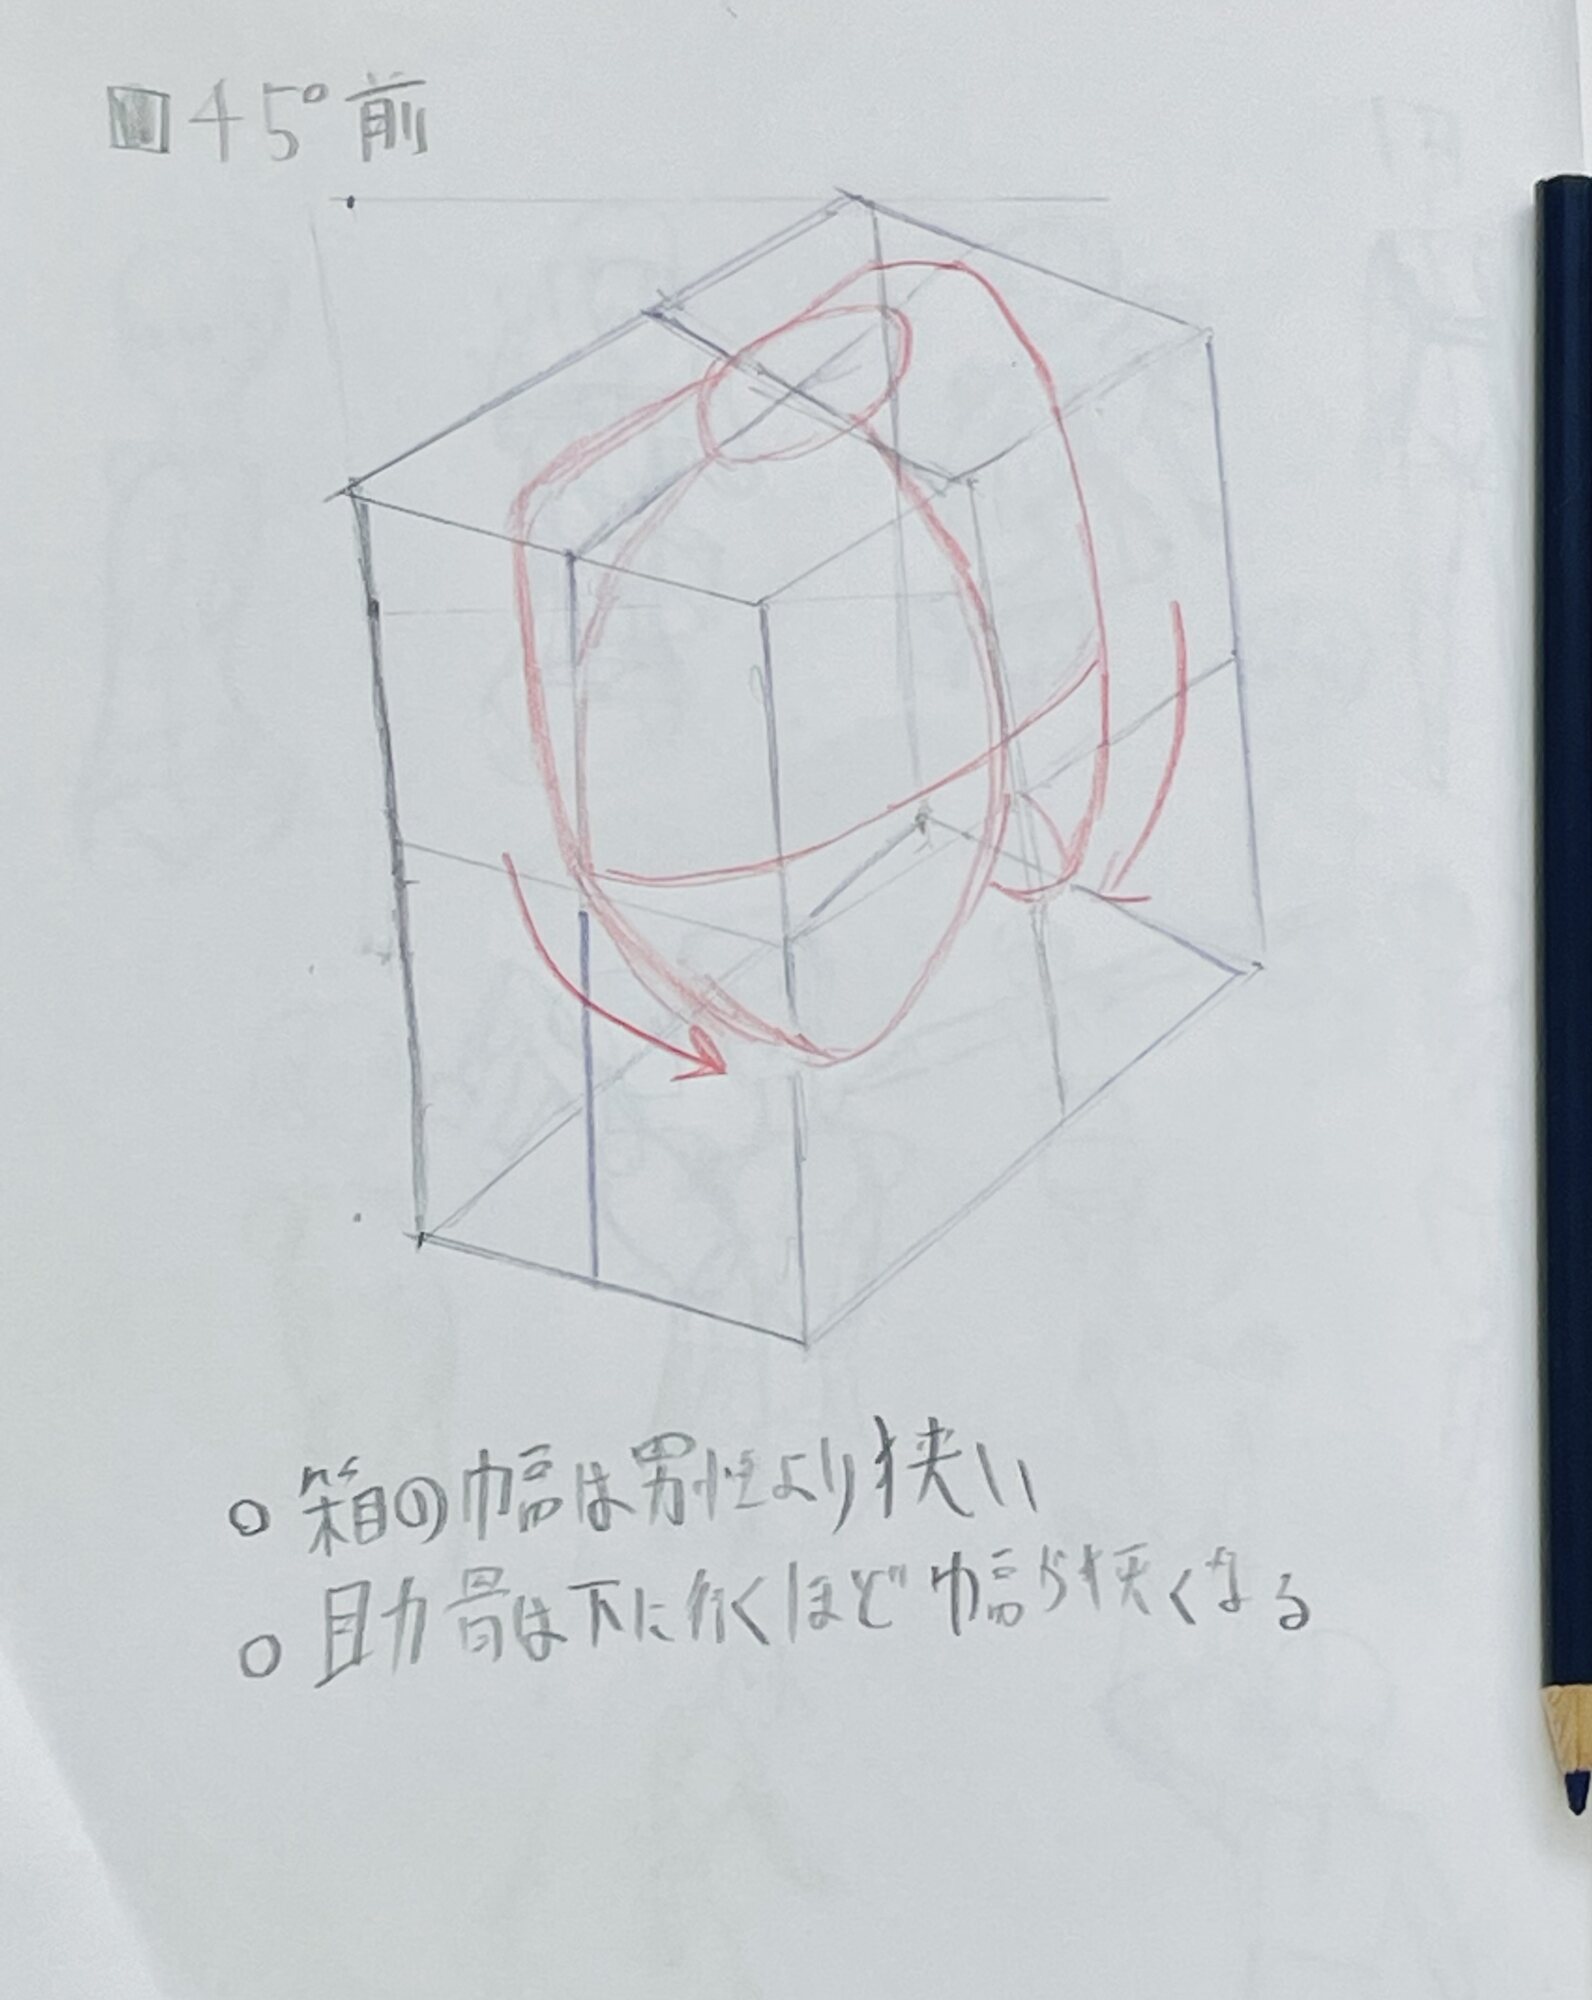 ■45°前
○箱の幅は男性より狭い
○肋骨は下に行くほど幅が狭くなる